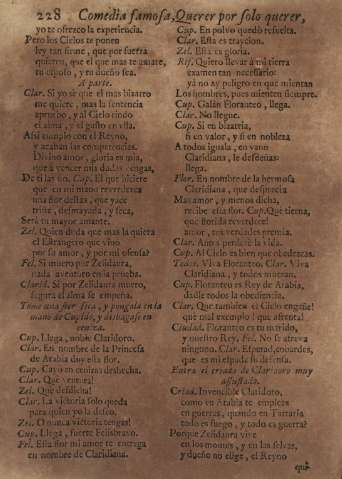 228 Comedia famosa, Querer por solo querer,
yo te ofrezco la experiencia.
Pero los Cielos te ponen
ley tan firme, que por fuerza
quieren, que el que mas te amáre,
tu esposo, y tu dueño sea.
A parte.
Clar. Si yo sé que el mas bizarro
me quiere, mas la sentencia
apruebo, y al Cielo rindo
el alma, y el gusto en ella.
Assi cumplo con el Reyno,
y acaban las competencias.
Divino amor, gloria es mia,
que à vencer mis dudas vengas,
De ti las fio. Cup. El que hiciere
que en mi mano reverdezca
una flor destas, que yace
triste, desmayada, y seca,
Será tu mayor amante.
Zel. Quien duda que mas la quiera
el Estrangero que vino
por su amor, y por mi ofensa?
Fel. Si muero por Zelidaura,
nada aventuro en la prueba.
Clarid. Si por Zelidaura muero,
segura el alma se empeña.
Toma una flor seca, y pongala en la
mano de Cupido, y deshagase en
ceniza.
Cup. Llega, noble Claridoro.
Clar. En nombre de la Princesa
de Arabia doy esta flor.
Cup. Cayo en cenizas deshecha.
Clar. Què ventura!
Zel. Què desdicha!
Clar. La victoria solo queda
para quien yo la deseo.
Zel. O nunca victoria tengas!
Cup. Llega, fuerte Felisbravo.
Fel. Esta flor mi amor te entrega
en nombre de Claridiana.
Cup. En polvo quedò resuelta.
Clar. Esta es traycion.
Zel. Esta es gloria.
Rif. Quiero llevar à mi tierra
examen tan necessario:
ya no ay peligro en que mientan
Los hombres, pues mienten siempre.
Cup. Galàn Floranteo, llega.
Clar. No llegue.
Cup. Si en bizarria,
si en valor, y si en nobleza
A todos iguala, en vano
Claridiana, le desdeñas:
llega.
Flor. En nombre de la hermosa
Claridiana, que desprecia
Mas amor, y menos dicha,
recibe esta flor. Cup. Que tierna,
que florida reverdece!
amor, tus verdades premia.
Clar. Antes perderè la vida.
Cup. Al Cielo es bien que obedezcas.
Todos. Viva Floranteo. Clar. Viva
Claridiana, y todos mueran.
Cup. Floranteo es Rey de Arabia,
dadle todos la obediencia.
Clar. Que tambien el Cielo engañe!
què mal exemplo! què afrenta!
Ciudad. Floranteo es tu marido,
y nuestro Rey. Fel. No se atreva
ninguno. Clar. Esperad, cobardes,
que es mi espada su defensa.
Entra el criado de Claridoro muy
assustado.
Criad. Invencible Claridoro,
como en Arabia te empleas
en guerras, quando en Tartaria
todo es fuego, y todo es guerra?
Porque Zelidaura vive
en los montes, y en las selvas,
y dueño no elige, el Reyno
que